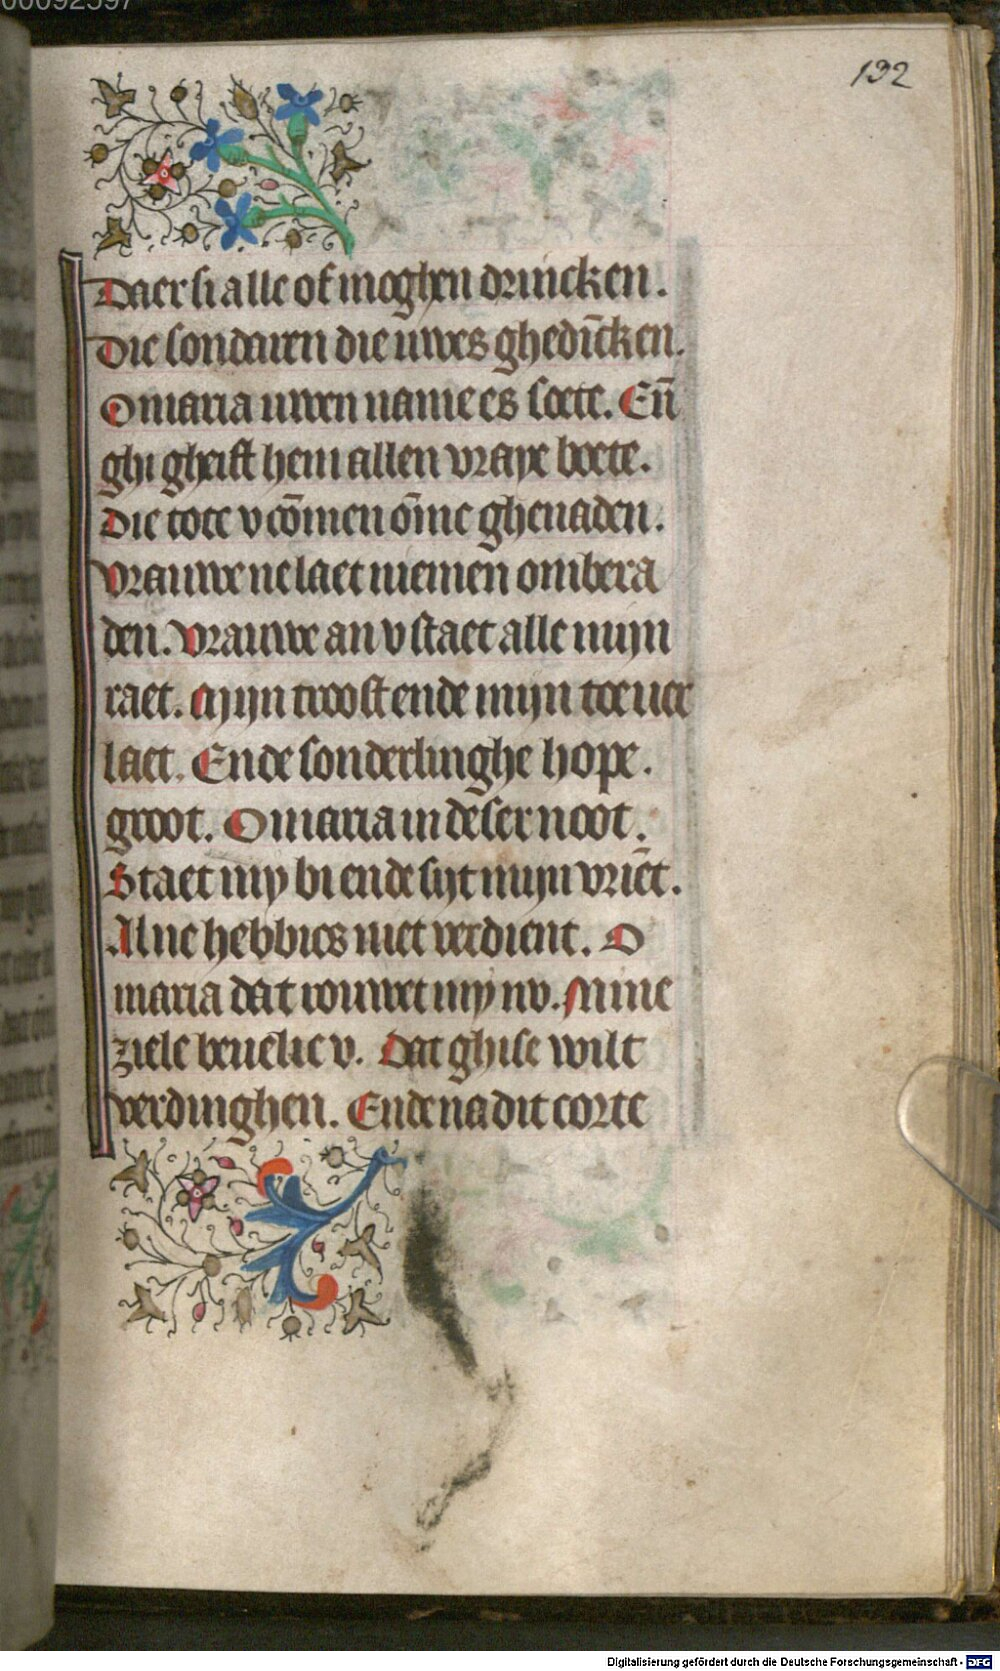 00092597
192
Daer si alle of moghen drincken.
Die sondaren die uwes ghedīcken.
O maria uwen name es soete. Eñ
ghi gheift hem allen vraye boete.
Die tote v cōmen ōme ghenaden.
Vrauwe ne laet niemen ombera
den. Vrauwe an v staet alle mijn
raet. Mijn troost ende mijn toeuer
laet. Ende sonderlinghe hope.
groot. O maria in deser noot.
Staet my bi ende sijt mijn vriēt.
Al ne hebbics niet verdient. O
maria dat rouwet mij nv. Mine
ziele beuelic v. Dat ghise wilt
verdinghen. Ende na dit corte
Digitalisierung gefördert durch die Deutsche Forschungsgemeinschaft - DFG